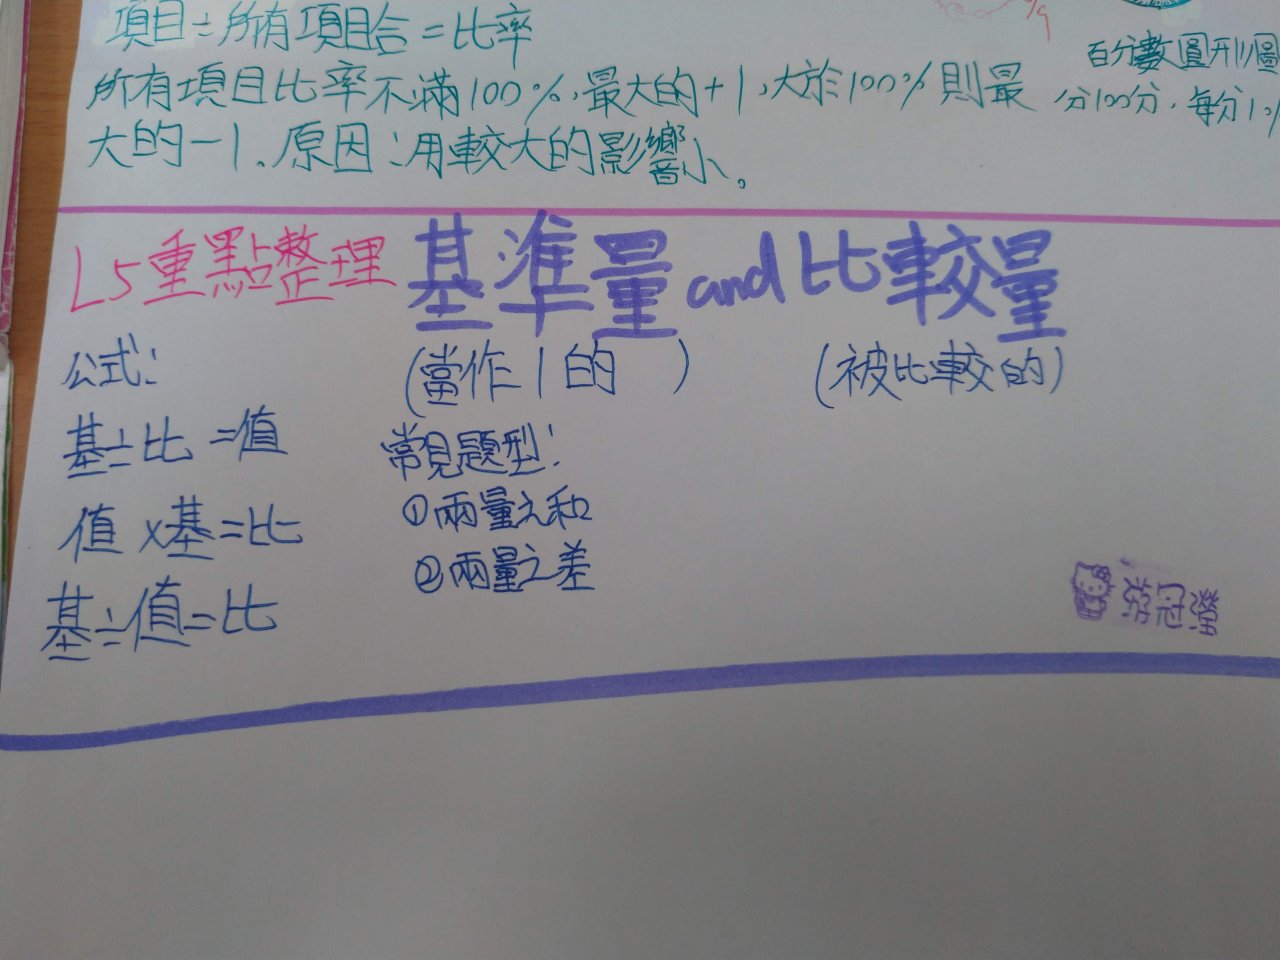 項目÷所有項目合=比率
所有項目比率不滿100%,最大的+1,大於100%則最
大的-1。原因:用較大的影響小。
百分數圓形圖
分100分,每分1%
L5重點整理 基準量and比較量
(當作1的 ) (被比較的)
公式:
基÷比=值
值×基=比
基÷值=比
常見題型:
①兩量之和
②兩量之差